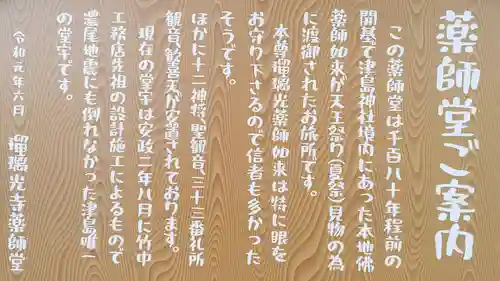 薬師堂ご案内
この薬師堂は千百八十年程前の
開基で津島神社境内にあった本地佛
薬師如来が天王祭り(夏祭)見物の為
に渡御されたお旅所です。
本尊瑠璃光薬師如来は特に眼を
お守り下さるので信者も多かった
そうです。
ほかに十二神将、聖観音、三十三番札所
観音、歓喜天が安置されております。
現在の堂宇は安政二年八月に竹中
工務店先祖の設計施工によるもので
濃尾地震にも倒れなかった津島唯一
の堂宇です。
令和元年六月
瑠璃光寺薬師堂